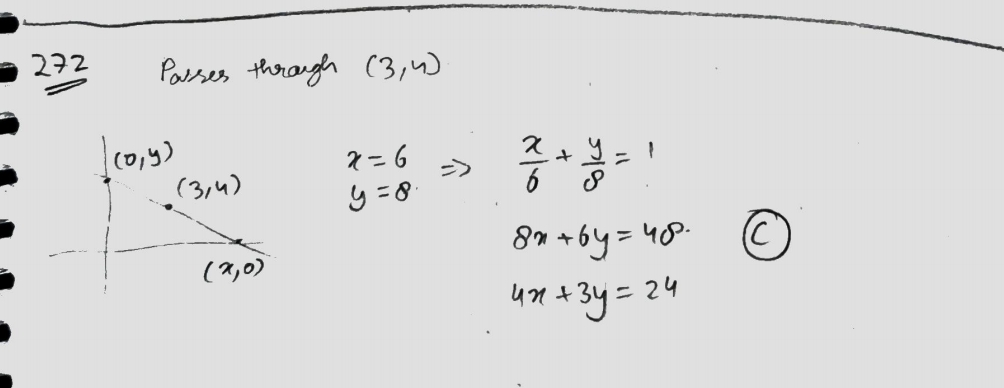 272 Passes through (3,4)
(0,y)
(3,4)
(x,0)
x = 6
y = 8.
⇒ x/6 + y/8 = 1
8x + 6y = 48.
4x + 3y = 24
C